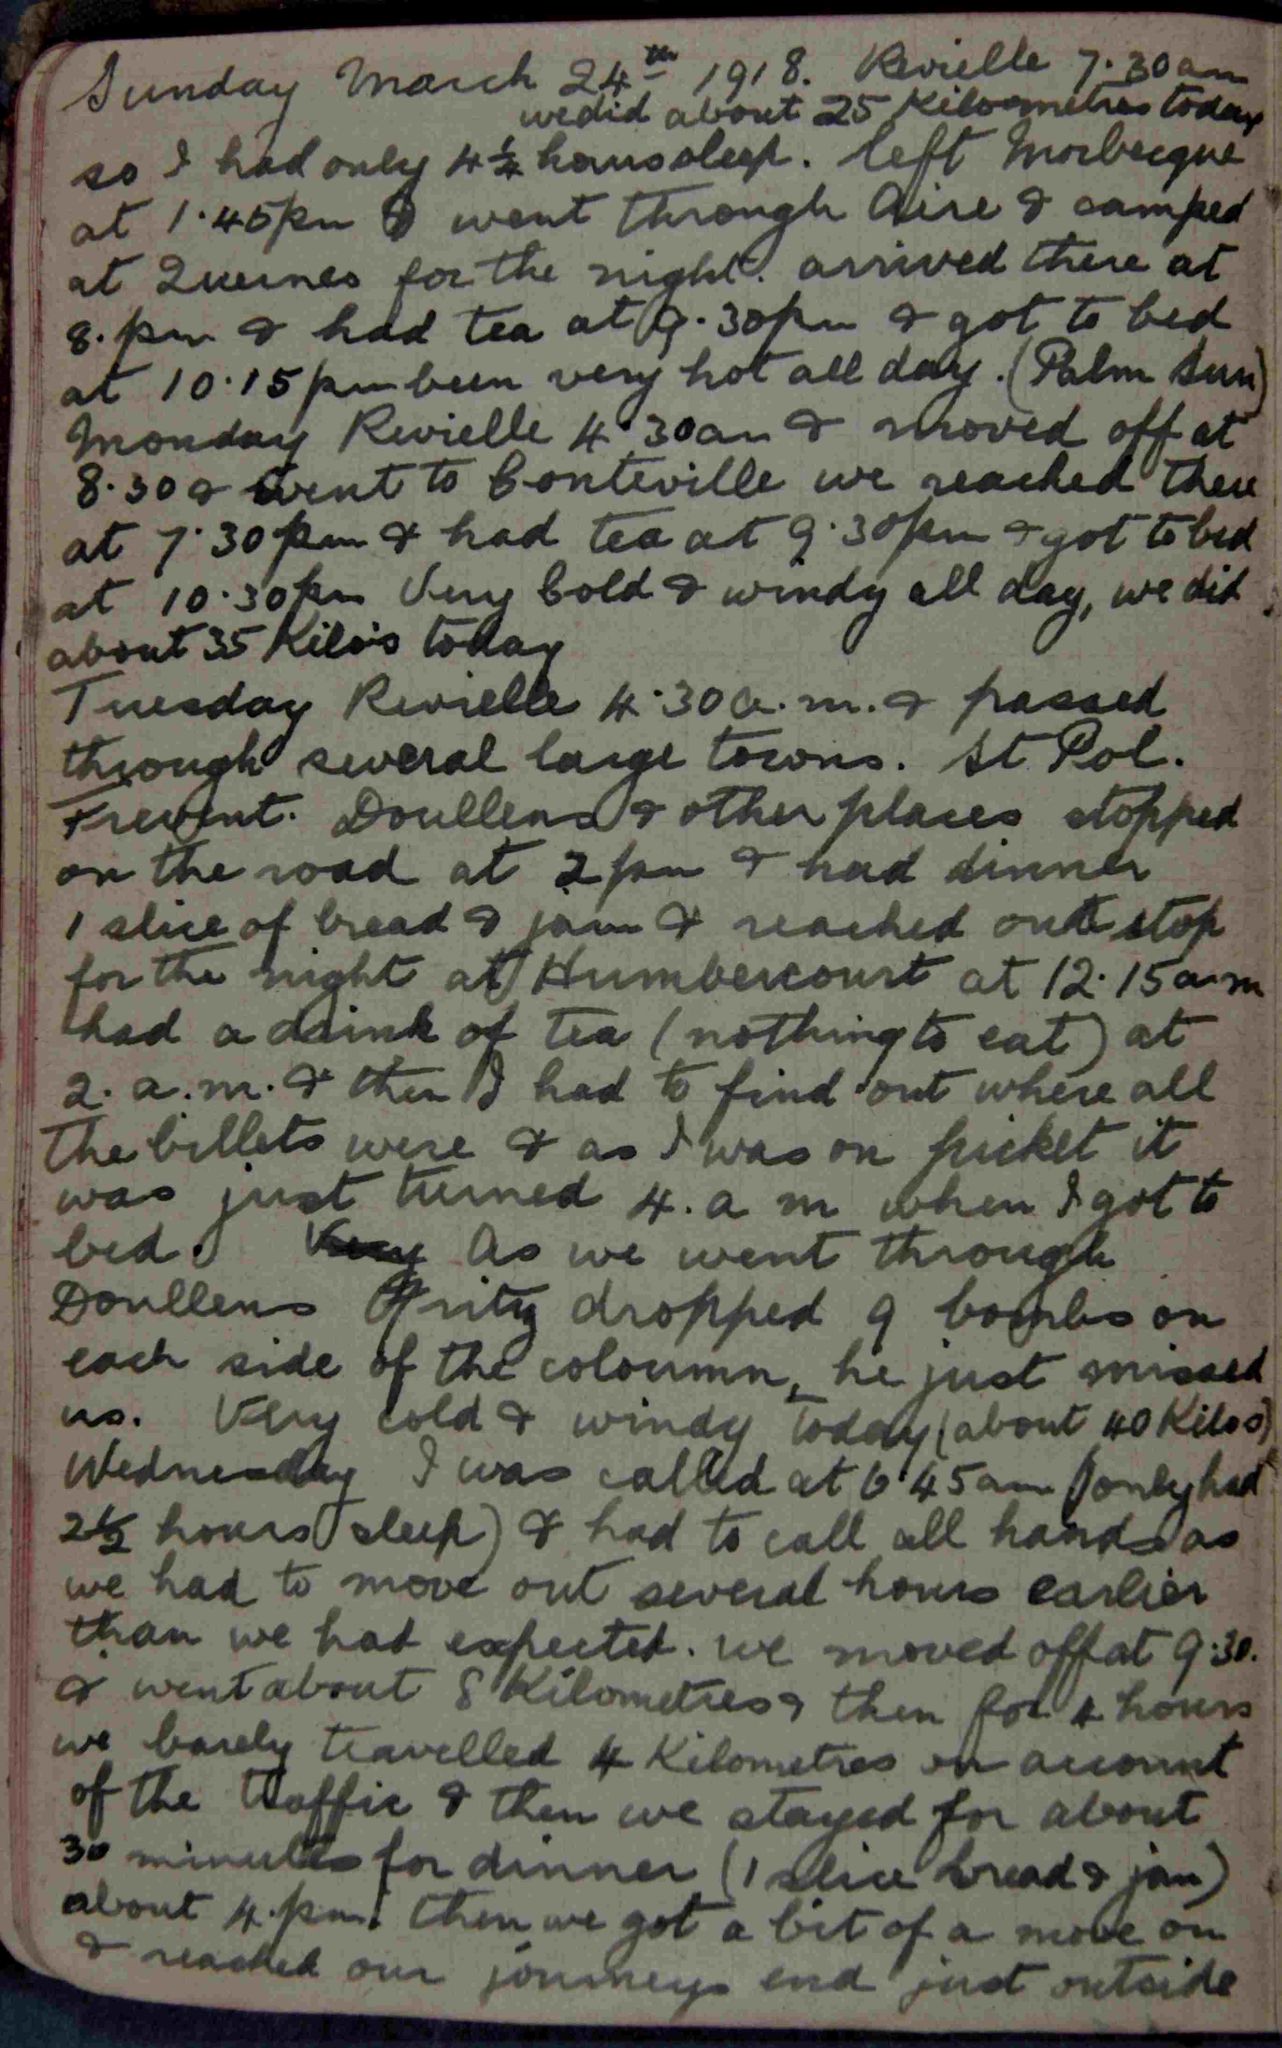 Sunday March 24th 1918. Revielle 7.30am
we did about 25 Kilometres today
so I had only 4½ hours sleep. left Morbecque
at 1.45pm & went through Aire & camped
at Quernes for the night. arrived there at
8.pm & had tea at 9.30pm & got to bed
at 10.15pm been very hot all day. (Palm Sun)
Monday Revielle 4.30am & moved off at
8.30 & went to Conteville we reached there
at 7.30pm & had tea at 9.30pm & got to bed
at 10.30pm Very Cold & windy all day, we did
about 35 Kilo's today
Tuesday Revielle 4.30a.m. & passed
through several large towns. St Pol.
Frevent. Doullens & other places stopped
on the road at 2pm & had dinner
1 slice of bread & jam & reached our stop
for the night at Humbercourt at 12.15a.m
had a drink of tea (nothing to eat) at
2. a.m. & then I had to find out where all
the billets were & as I was on picket it
was just turned 4. a m when I got to
bed. Very As we went through
Doullens Fritz dropped 9 bombs on
each side of the coloumn, he just missed
us. Very cold & windy today (about 40 Kilos)
Wednesday I was called at 6.45am (only had
2½ hours sleep) & had to call all hands as
we had to move out several hours earlier
than we had expected. we moved off at 9.30.
& went about 8 Kilometres & then for 4 hours
we barely travelled 4 Kilometres on account
of the traffic & then we stayed for about
30 minutes for dinner (1 slice bread & jam)
about 4.pm. then we got a bit of a move on
& reached our journeys end just outside